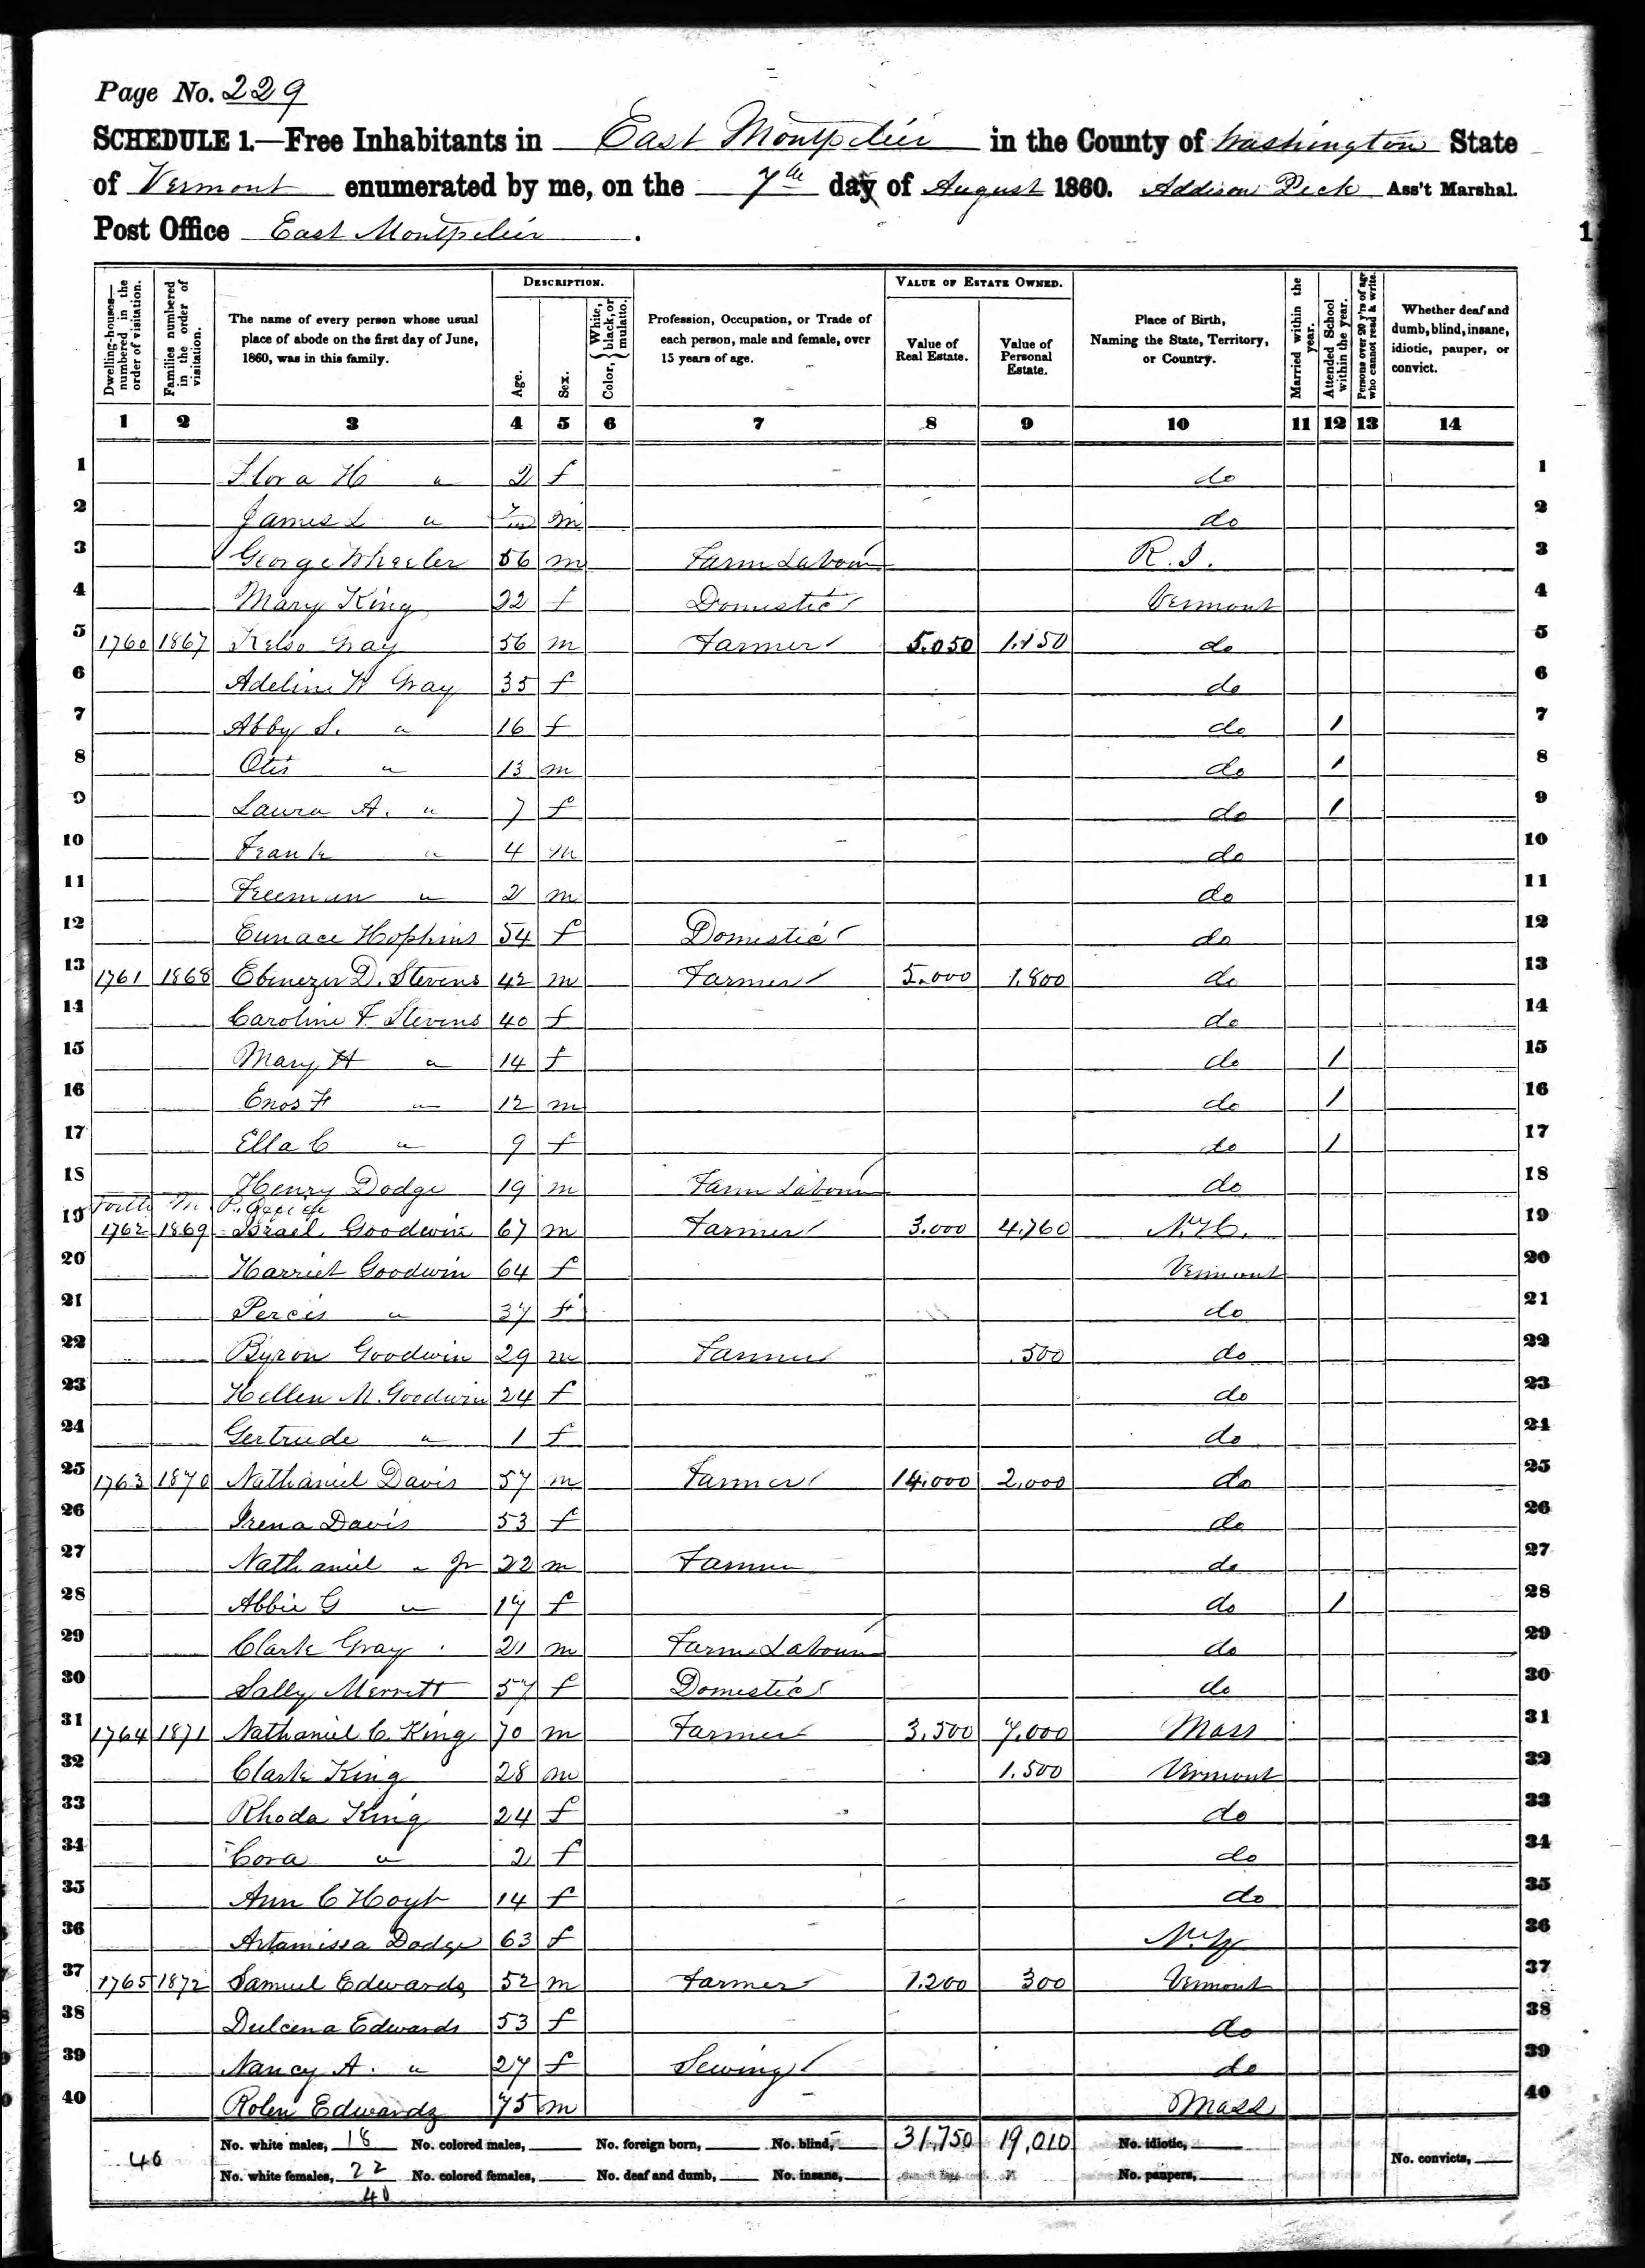 Page No. 229
SCHEDULE 1.—Free Inhabitants in East Montpelier in the County of Washington State
of Vermont enumerated by me, on the 7th day of August 1860. Addison Peck Ass't Marshal.
Post Office East Montpelier.
DESCRIPTION. VALUE OF ESTATE OWNED.
Dwelling-houses—numbered in the order of visitation. Families numbered in the order of visitation. The name of every person whose usual place of abode on the first day of June, 1860, was in this family. Age. Sex. Color, White, black, or mulatto. Profession, Occupation, or Trade of each person, male and female, over 15 years of age. Value of Real Estate. Value of Personal Estate. Place of Birth, Naming the State, Territory, or Country. Married within the year. Attended School within the year. Persons over 20 y'rs of age who cannot read & write. Whether deaf and dumb, blind, insane, idiotic, pauper, or convict.
1 2 3 4 5 6 7 8 9 10 11 12 13 14
1 Flora H " 2 f do 1
2 James L " m do 2
3 George Wheeler 56 m Farm Labour R.I. 3
4 Mary King 22 f Domestic Vermont 4
5 1760 1867 Kelso Gray 56 m Farmer 5.050 1.150 do 5
6 Adeline W Gray 35 f do 6
7 Abby S. " 16 f do 1 7
8 Otis " 13 m do 1 8
9 Laura A. " 7 f do 1 9
10 Frank " 4 m do 10
11 Freeman " 2 m do 11
12 Eunace Hopkins 54 f Domestic do 12
13 1761 1868 Ebenezer D. Stevens 42 m Farmer 5.000 1.800 do 13
14 Caroline F. Stevens 40 f do 14
15 Mary H " 14 f do 1 15
16 Enos F " 12 m do 1 16
17 Ella C " 9 f do 1 17
18 Henry Dodge 19 m Farm Labour do 18
North M. P. Office
19 1762 1869 Israel Goodwin 67 m Farmer 3.000 4.760 N.H. 19
20 Harriet Goodwin 64 f Vermont 20
21 Percis " 37 f do 21
22 Byron Goodwin 29 m Farmer .500 do 22
23 Hellen M. Goodwin 24 f do 23
24 Gertrude " 1 f do 24
25 1763 1870 Nathaniel Davis 57 m Farmer 14.000 2.000 do 25
26 Irena Davis 53 f do 26
27 Nathaniel " Jr 22 m Farmer do 27
28 Abbie G " 17 f do 1 28
29 Clark Gray 21 m Farm Labour do 29
30 Sally Merrett 57 f Domestic do 30
31 1764 1871 Nathaniel C. King 70 m Farmer 3.500 7.000 Mass 31
32 Clark King 28 m 1.500 Vermont 32
33 Rhoda King 24 f do 33
34 Cora " 2 f do 34
35 Ann C Hoyt 14 f do 35
36 Artamissa Dodge 63 f N.Y 36
37 1765 1872 Samuel Edwards 52 m Farmer 1.200 300 Vermont 37
38 Dulcena Edwards 53 f do 38
39 Nancy A. " 27 f Sewing do 39
40 Rolen Edwards 75 m Mass 40
40 No. white males, 18 No. colored males, No. foreign born, No. blind, 31,750 19,010 No. idiotic, No. convicts,
No. white females, 22 No. colored females, No. deaf and dumb, No. insane, No. paupers,
40